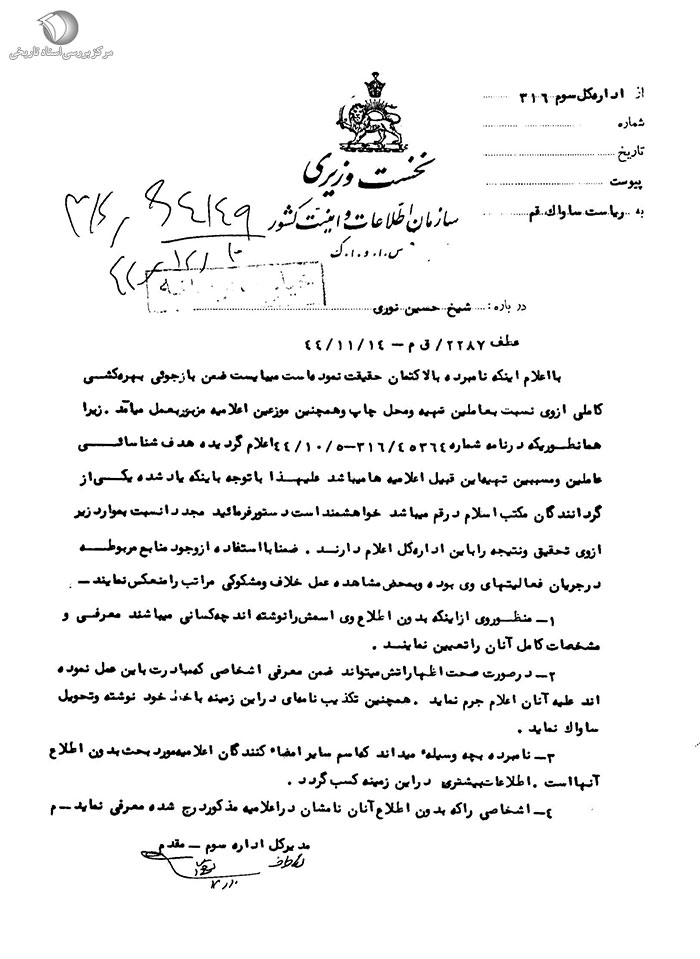 مرکز بررسی اسناد تاریخی
از اداره کل سوم ۳۱۶
شماره
تاریخ
پیوست
به ریاست ساواک قم
نخست وزیری
سازمان اطلاعات و امنیت کشور
س.ا.و.ا.ک
درباره: شیخ حسین نوری
عطف ۲۲۸۷/ ق م – ۴۴/۱۱/۱۴
با اعلام اینکه نامبرده بالا کتمان حقیقت نموده است میبایست ضمن بازجوئی بهره کشی
کاملی ازوی نسبت بعاملین تهیه ومحل چاپ وهمچنین موزعین اعلامیه مزبور بعمل میآمد . زیرا
همانطوریکه در نامه شماره ۳۱۶/۴۵۳۶۴–۴۴/۱۰/۵ اعلام گردیده هدف شناسائی
عاملین ومسببین تهیه این قبیل اعلامیه ها میباشد علیهذا با توجه باینکه یاد شده یکی از
گردانندگان مکتب اسلام در قم میباشد خواهشمند است دستور فرمائید مجددا نسبت بموارد زیر
ازوی تحقیق ونتیجه را باین اداره کل اعلام دارند . ضمنا با استفاده از وجود منابع مربوطه
درجریان فعالیتهای وی بوده وبمحض مشاهده عمل خلاف ومشکوکی مراتب را منعکس نمایند –
۱– منظور وی از اینکه بدون اطلاع وی اسمش را نوشته اند چه کسانی میباشند معرفی و
مشخصات کامل آنان را تعیین نمایند .
۲– درصورت صحت اظهاراتش میتواند ضمن معرفی اشخاصی که مبادرت باین عمل نموده
اند علیه آنان اعلام جرم نماید . همچنین تکذیب نامه ای در این زمینه با خط خود نوشته وتحویل
ساواک نماید .
۳– نامبرده بچه وسیله میداند که اسم سایر امضاء کنندگان اعلامیه مورد بحث بدون اطلاع
آنها است . اطلاعات بیشتری در این زمینه کسب گردد .
۴– اشخاصی را که بدون اطلاع آنان نامشان در اعلامیه مذکور درج شده معرفی نماید – م
مدیرکل اداره سوم – مقدم